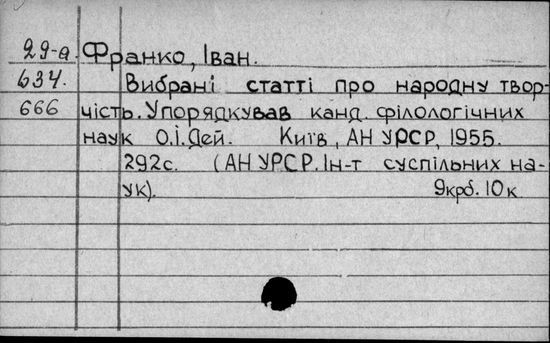 29-а Франко, Іван.
634. Вибрані статті про народну твор-
666 чість. Упорядкував канд. філологічних
наук О.І. Дей. Київ, АН УРСР, 1955.
292с. (АН УРСР. Ін-т суспільних на-
ук). 9крб. 10к.